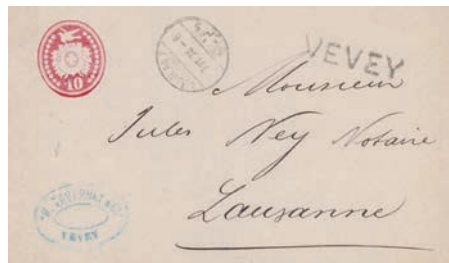 10
VEVEY
Monsieur
Jules Ney Notaire
Lausanne
VEVEY